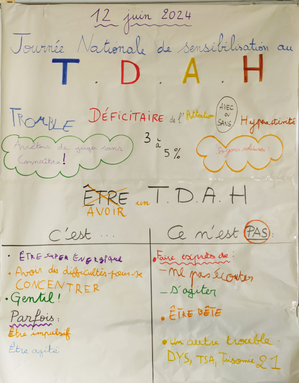 12 juin 2024
Journée Nationale de sensibilisation au
T.D.A.H
TROUBLE DÉFICITAIRE de l'Attention AVEC OU SANS Hyperactivité
3 à 5 %
Arrêtez de juger sans connaître!
ÊTRE un T.D.A.H
AVOIR
C'est...
• ÊTRE SUPER ÉNERGIQUE
• Avoir des difficultés pour se CONCENTRER
• Gentil!
Parfois:
Être impulsif
Être agité
Ce n'est PAS:
• Faire exprès de:
- ne pas écouter
- S'agiter
• ÊTRE BÊTE
• Un autre trouble
DYS, TSA, 21